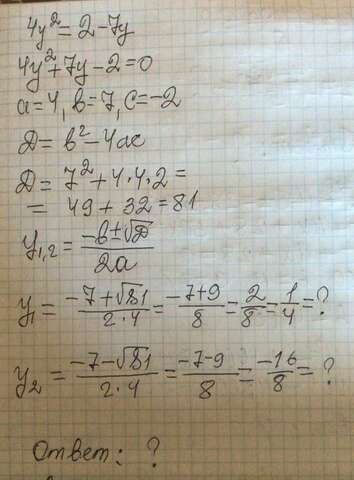 4y² = 2 - 7y
4y² + 7y - 2 = 0
a = 4, в = 7, c = -2
Д = в² - 4ac
Д = 7² + 4·4·2 =
= 49 + 32 = 81
y₁,₂ = (-в ± √Д)/2a
y₁ = (-7 + √81)/(2·4) = (-7 + 9)/8 = 2/8 = 1/4 = ?
y₂ = (-7 - √81)/(2·4) = (-7 - 9)/8 = -16/8 = ?
Ответ: ?